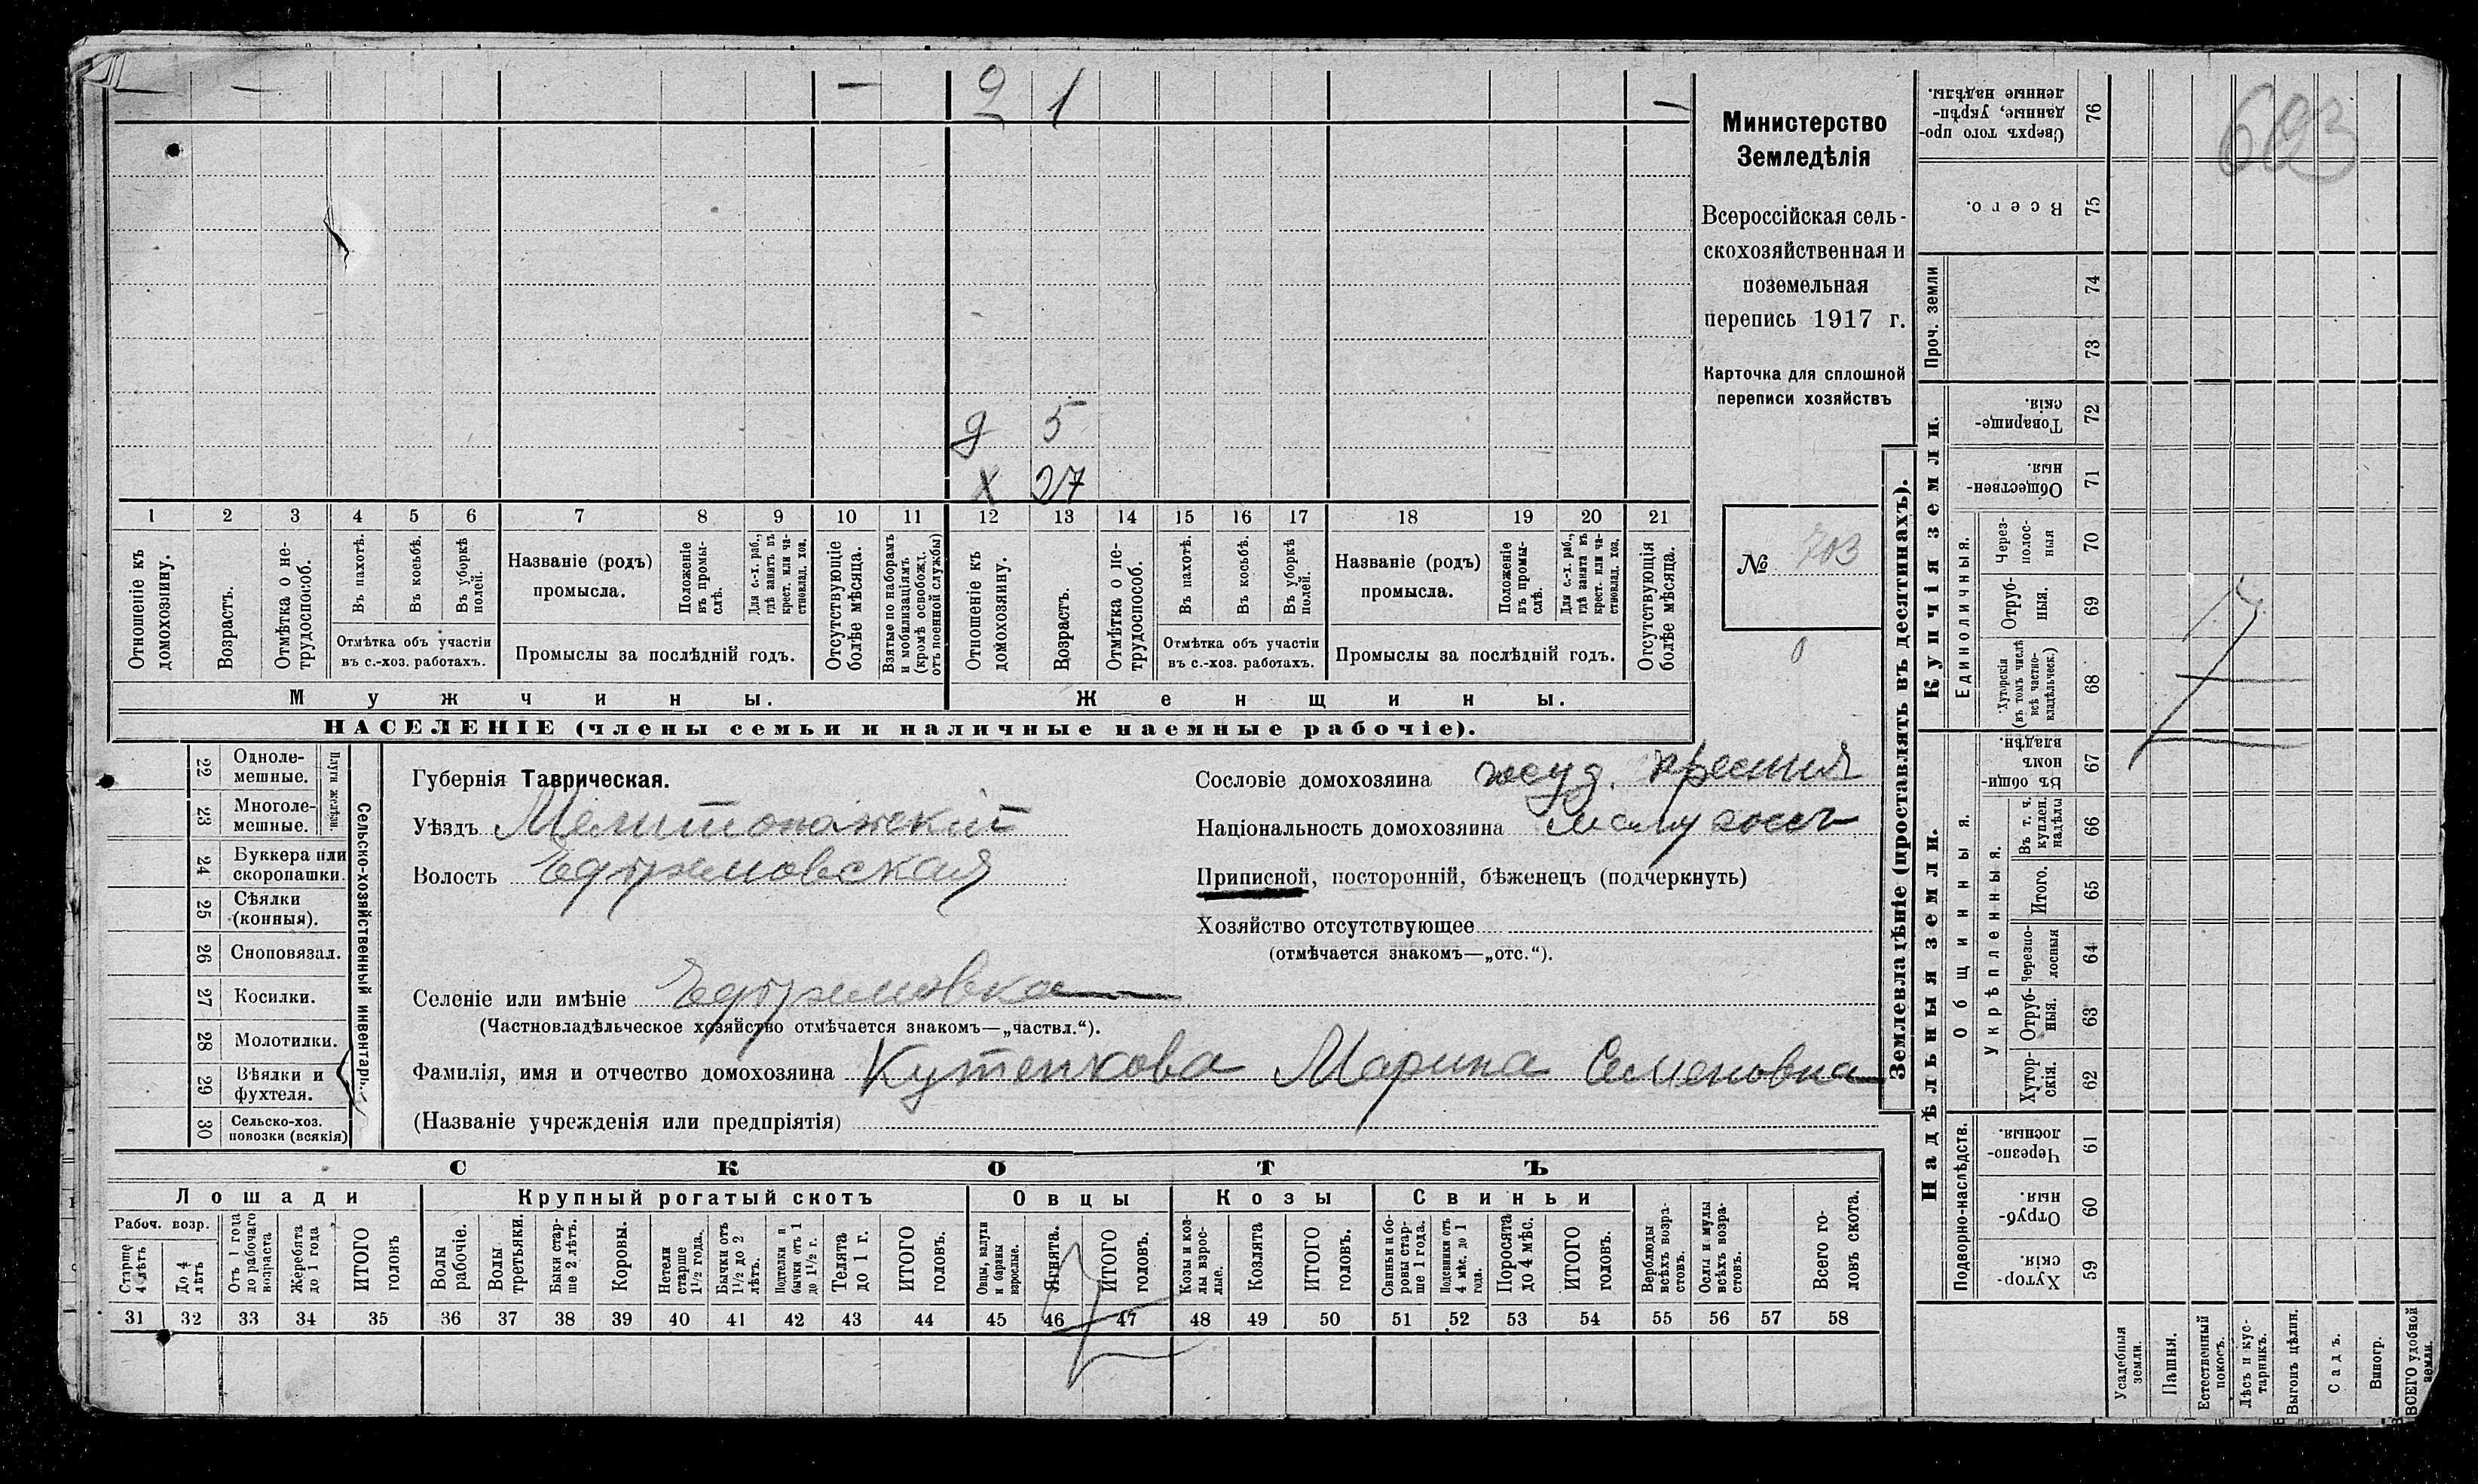 2 1
д 5
х 27
1 2 3 4 5 6 7 8 9 10 11 12 13 14 15 16 17 18 19 20 21
Отношеніе къ домохозяину.
Возрастъ.
Отмѣтка о не-
трудоспособ.
Въ пахотѣ.
Въ косьбѣ.
Въ уборкѣ
полей.
Отмѣтка объ участіи
въ с.-хоз. работахъ.
Названіе (родъ)
промысла.
Положеніе
въ промы-
слѣ.
Для с.-х. раб.,
гдѣ занятъ въ
крест. или ча-
стновлад. хоз.
Промыслы за послѣдній годъ.
Отсутствующіе
болѣе мѣсяца.
Взятые по наборамъ
и мобилизаціямъ
(кромѣ освобожд.
отъ военной службы)
Отношеніе къ
домохозяину.
Возрастъ.
Отмѣтка о не-
трудоспособ.
Въ пахотѣ.
Въ косьбѣ.
Въ уборкѣ
полей.
Отмѣтка объ участіи
въ с.-хоз. работахъ.
Названіе (родъ)
промысла.
Положеніе
въ промы-
слѣ.
Для с.-х. раб.,
гдѣ занята въ
крест. или ча-
стновлад. хоз.
Промыслы за послѣдній годъ.
Отсутствующія
болѣе мѣсяца.
Мужчины.
Женщины.
НАСЕЛЕНІЕ (члены семьи и наличные наемные рабочіе).
Министерство
Земледѣлія
Всероссійская сель-
скохозяйственная и
поземельная
перепись 1917 г.
Карточка для сплошной
переписи хозяйствъ
№ 703
0
693
22 Одноле-
мешные.
23 Многоле-
мешные.
Плуги желѣзн.
24 Буккера или
скоропашки.
25 Сѣялки
(конныя).
26 Сноповязал.
27 Косилки.
28 Молотилки.
29 Вѣялки и
фухтеля.
30 Сельско-хоз.
повозки (всякія)
Сельско-хозяйственный инвентарь.
Губернія Таврическая.
Уѣздъ Мелитопольскій
Волость Ефремовская
Селеніе или имѣніе Ефремовка
(Частновладѣльческое хозяйство отмѣчается знакомъ—„частвл.“).
Фамилія, имя и отчество домохозяина Кутепкова Марина Семеновна
(Названіе учрежденія или предпріятія)
Сословіе домохозяина
Національность домохозяина
Приписной, посторонній, бѣженецъ (подчеркнуть)
Хозяйство отсутствующее
(отмѣчается знакомъ—„отс.“).
СКОТЪ
Лошади
Рабоч. возр.
Старше
4 лѣтъ
До 4
лѣтъ
Отъ 1 года
до рабочаго
возраста
Жеребята
до 1 года
ИТОГО
головъ
Крупный рогатый скотъ
Волы
рабочіе.
Волы
третьяки.
Быки стар-
ше 2 лѣтъ.
Коровы.
Нетели
старше
1½ года.
Бычки отъ
1½ до 2
лѣтъ.
Подтелки и
бычки отъ 1
до 1½ г.
Телята
до 1 г.
ИТОГО
головъ.
Овцы
Овцы, валухи
и бараны
взрослые.
Ягнята.
ИТОГО
головъ.
Козы
Козы и коз-
лы взрос-
лые.
Козлята
ИТОГО
головъ.
Свиньи
Свиньи и бо-
ровы стар-
ше 1 года.
Подсвинки отъ
4 мѣс. до 1
года.
Поросята
до 4 мѣс.
ИТОГО
головъ.
Верблюды
всѣхъ возра-
стовъ.
Ослы и мулы
всѣхъ возра-
стовъ.
Всего го-
ловъ скота.
31 32 33 34 35 36 37 38 39 40 41 42 43 44 45 46 47 48 49 50 51 52 53 54 55 56 57 58
Землевладѣніе (проставлять въ десятинахъ).
Купчія земли.
Сверхъ того про-
данные, укрѣп-
ленные надѣлы.
76
Всего.
75
Проч. земли
74
73
Товарище-
скія.
72
Обществен-
ныя.
71
Единоличныя.
Через-
полос-
ныя
70
Отруб-
ныя.
69
Хуторскія
(въ томъ числѣ
всѣ частно-
владѣльческ.)
68
Надѣльныя земли.
Общинныя.
Въ общин-
номъ
владѣн.
67
Укрѣпленныя.
Въ т. ч.
куплен.
надѣлы
66
Итого.
65
Черезпо-
лосныя
64
Отруб-
ныя.
63
Хутор-
скія.
62
Подворно-наслѣдств.
Черезпо-
лосныя.
61
Отруб-
ныя.
60
Хутор-
скія.
59
Усадебныя
земли.
Пашня.
Естественный
покосъ.
Лѣсъ и кус-
тарникъ.
Выгонъ цѣлин.
Садъ.
Виногр.
ВСЕГО удобной
земли.